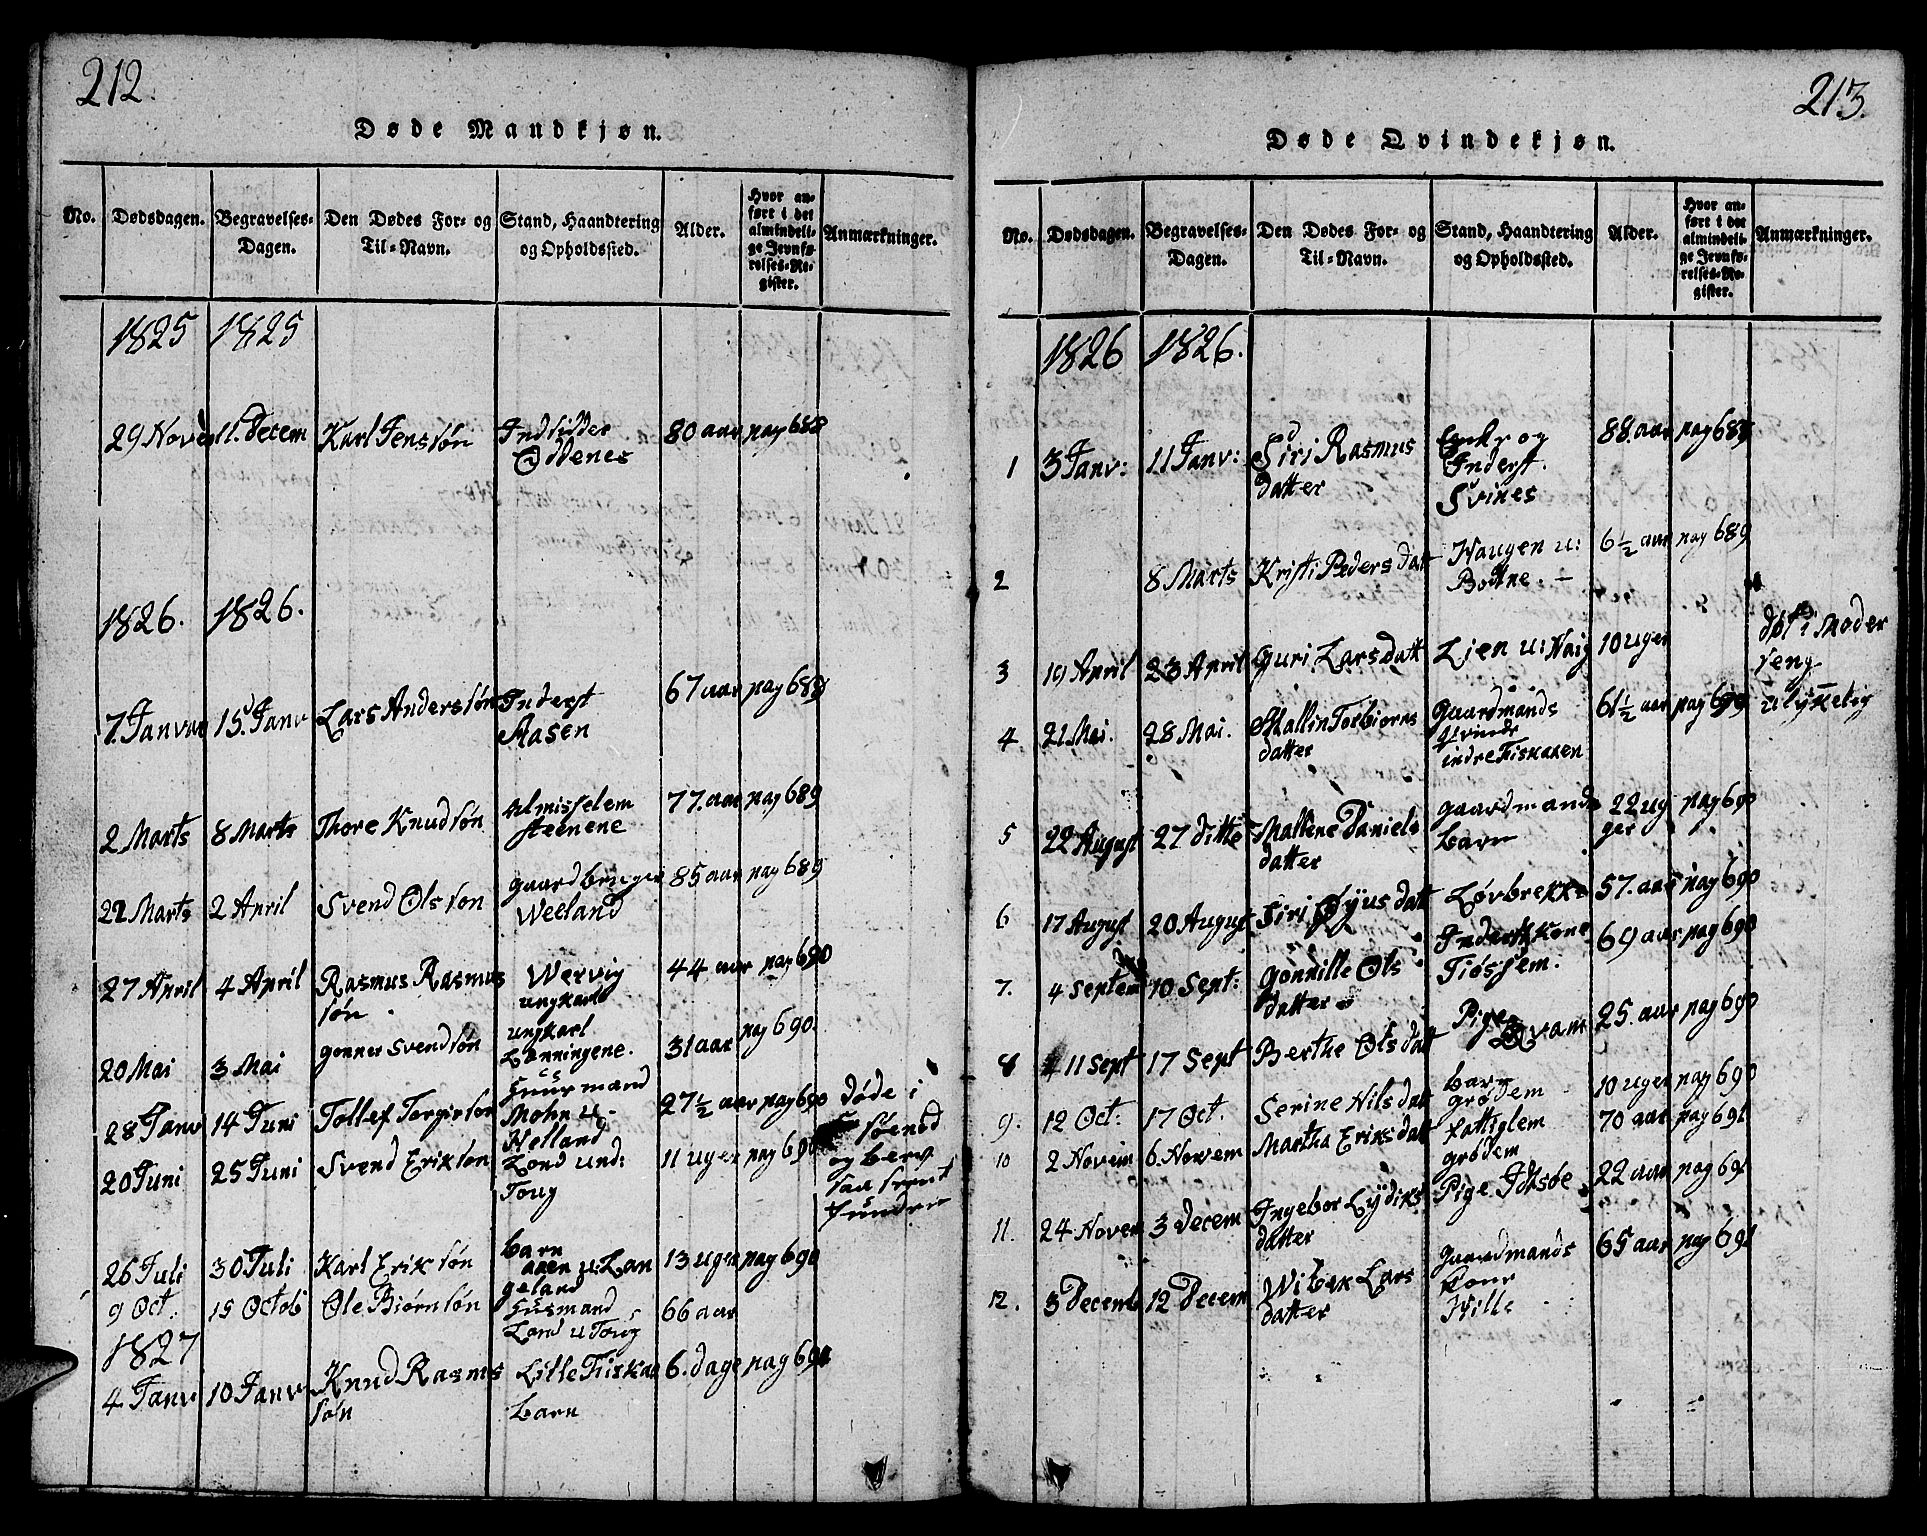 212.
Døde Mandkjøn.
No. Dødsdagen. Begravelses-Dagen. Den Dødes For- og Til-Navn. Stand, Haandtering og Opholdssted. Alder. Hvor anført i det almindelige Jevnførelses-Register. Anmærkninger.
1825 1825
29 Nove 11. Decem Karl Jenssøn Indsidder Oddenes 80 aar pag 688
1826. 1826.
7. Janvar 15. Janv Lars Anderssøn Inderst Aasen 67 aar pag 688
2 Marts 8 Marts Thore Knudsøn Almisselem steenene 77. aar pag 689
22 Marts 2 April Svend Olsson gaardbruger Weeland 85 aar pag 689
27 April 4 April Rasmus Rasmus
søn Wervig ungkarl 44 aar pag 690
20 Mai 3 Mai Gonner Svendsøn ungkarl Lænningene. 31 aar pag 690.
28 Janv 14 Juni Tollef Torgerson Huusmand Mohn u. Helland 27½ aar pag 690 døde i
20 Juni 25 Juni Svend Erikson Lond und: Toug 11 uger pag 690
26 Juli 30 Juli Karl Eriksøn barn aaen u: Lan
geland 13 uger pag 690
9 Oct. 15 Octob Ole Biørnsøn Huusmand Lond u Toug 66 aar
1827
4 Janv 10 Janv Knud Rasmus
søn Lille Fiskaa barn 6. dage pag 690
213.
Døde Qvindekjøn.
No. Dødsdagen. Begravelses-Dagen. Den Dødes For- og Til-Navn. Stand, Haandtering og Opholdssted. Alder. Hvor anført i det almindelige Jevnførelses-Register. Anmærkninger.
1826 1826.
1 3 Janv: 11 Janv: Siri Rasmus
datter Enke og Inderst. Svines 88 aar pag 689
2 8 Marts Kristi Peders datt Haugen u: Bodne. 6½ aar pag 689
3 19 April 23 April Guri Lars datt Lien u: Haig 10 uger død i Moder
seng
ulykkelig
4. 21 Mai. 28 Mai. Mallin Torbiørns
datter Gaardmands qvinde indre Fiskaaen 61½ aar pag 690
5 22 August 27 ditto Mallene Daniels
datter gaardmands barn 22 ug
ger pag 690
6 17 August 20 August Siri Øyus datt Løvbrekke 57. aar pag 690
7. 4 Septem 10 Sept: Gonnille Ols
datter Inderstkone Tiøssem. 69 aar pag 690
8 11 Sept 17 Sept Berthe Ols datt Pige Qvam 25. aar pag 690
9. 12 Oct: 17 Oct. Serine Nils datt barn grødem 10 uger pag 690
10 2 Novem 6. Novem Martha Eriks datt fattiglem grødem 70 aar pag 691
11. 24 Novem 3 Decem Ingebor Lydiks
datter Pige Idsøe 22 aar pag 691
12. 3 Decemb 12 Decem Wibek Lars
datter Gaardmands kone Hille 65 aar pag 691